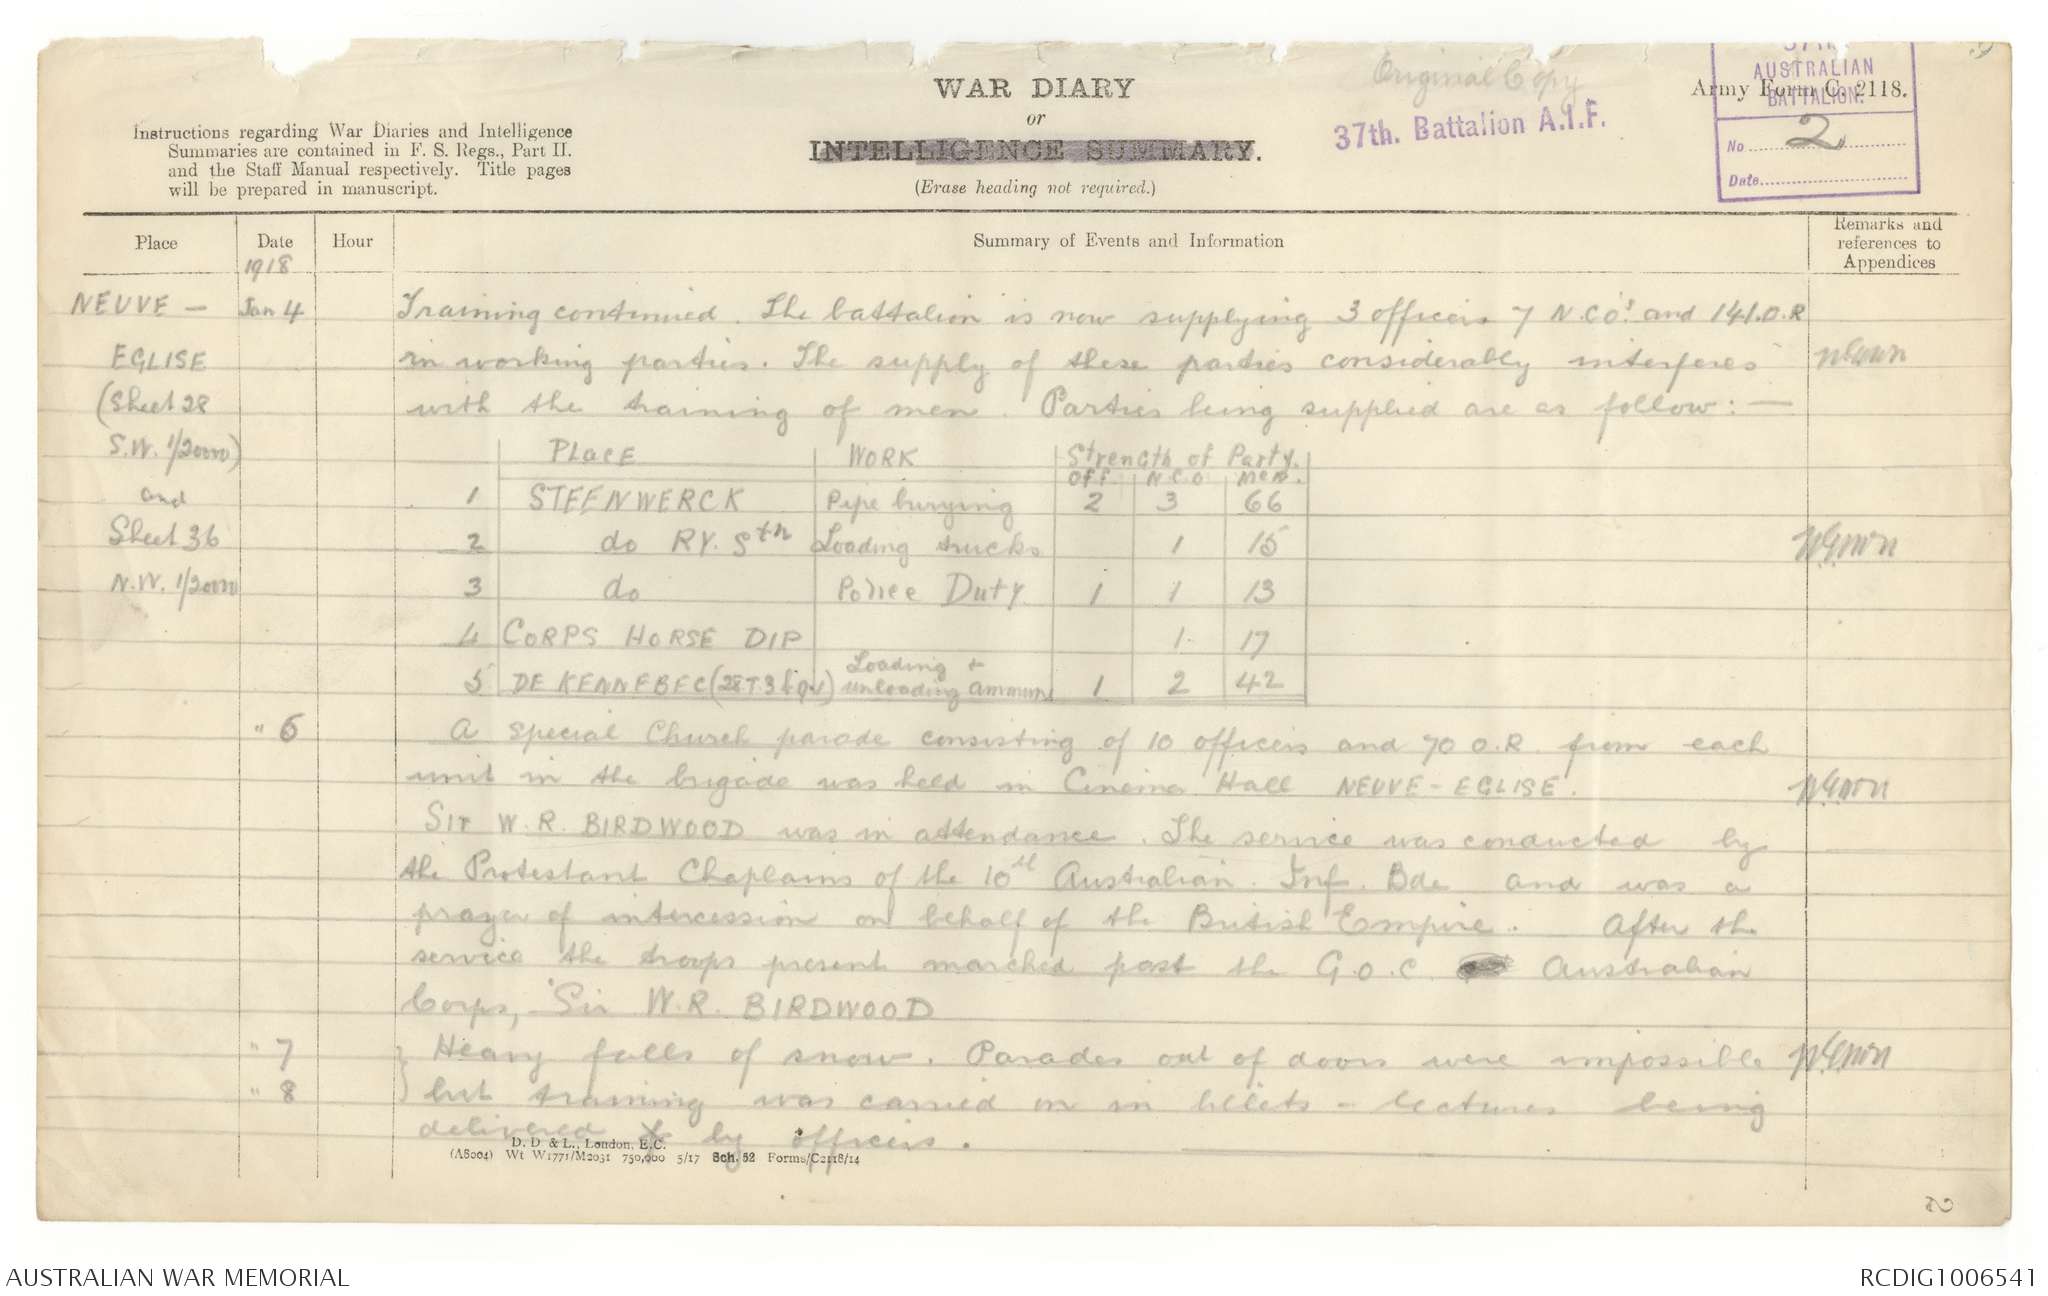 WAR DIARY
or
INTELLIGENCE SUMMARY.
(Erase heading not required.)
Instructions regarding War Diaries and Intelligence
Summaries are contained in F. S. Regs., Part II.
and the Staff Manual respectively. Title pages
will be prepared in manuscript.
Original Copy
37th. Battalion A.I.F.
Army Form C. 2118.
AUSTRALIAN
BATTALION.
No. 2
Date
Place
Date
Hour
Summary of Events and Information
Remarks and
references to
Appendices
1918
NEUVE - Jan 4 Training continued. The battalion is now supplying 3 officers 7 N.C.O's and 141.O.R
EGLISE in working parties. The supply of these parties considerably interferes
(Sheet 28 with the training of men. Parties being supplied are as follow: -
S.W. 1/20000) PLACE WORK Strength of Party.
and OFF. N.C.O men.
1 STEENWERCK Pipe burying 2 3 66
Sheet 36 2 do RY. Stn Loading trucks 1 15
N.W. 1/20000 3 do Police Duty 1 1 13
4 CORPS HORSE DIP 1 17
5 DE KENNEBEC (28.T.3 ) Loading + unloading ammun 1 2 42
" 6 A special Church parade consisting of 10 officers and 70 O.R. from each
unit in the brigade was held in Cinema Hall NEUVE - EGLISE.
Sir W.R. BIRDWOOD was in attendance. The service was conducted by
the Protestant Chaplains of the 10th Australian. Inf. Bde and was a
prayer of intercession on behalf of the British Empire. After the
service the troops present marched past the G.O.C. Australian
Corps, Sir W.R. BIRDWOOD
" 7 Heavy falls of snow. Parades out of doors were impossible
" 8 but training was carried on in billets - lectures being
delivered by officers.
D. D & L., London, E.C.
(A8004) Wt W1771/M2031 750,000 5/17 Sch. 52 Forms/C2118/14
AUSTRALIAN WAR MEMORIAL
RCDIG1006541